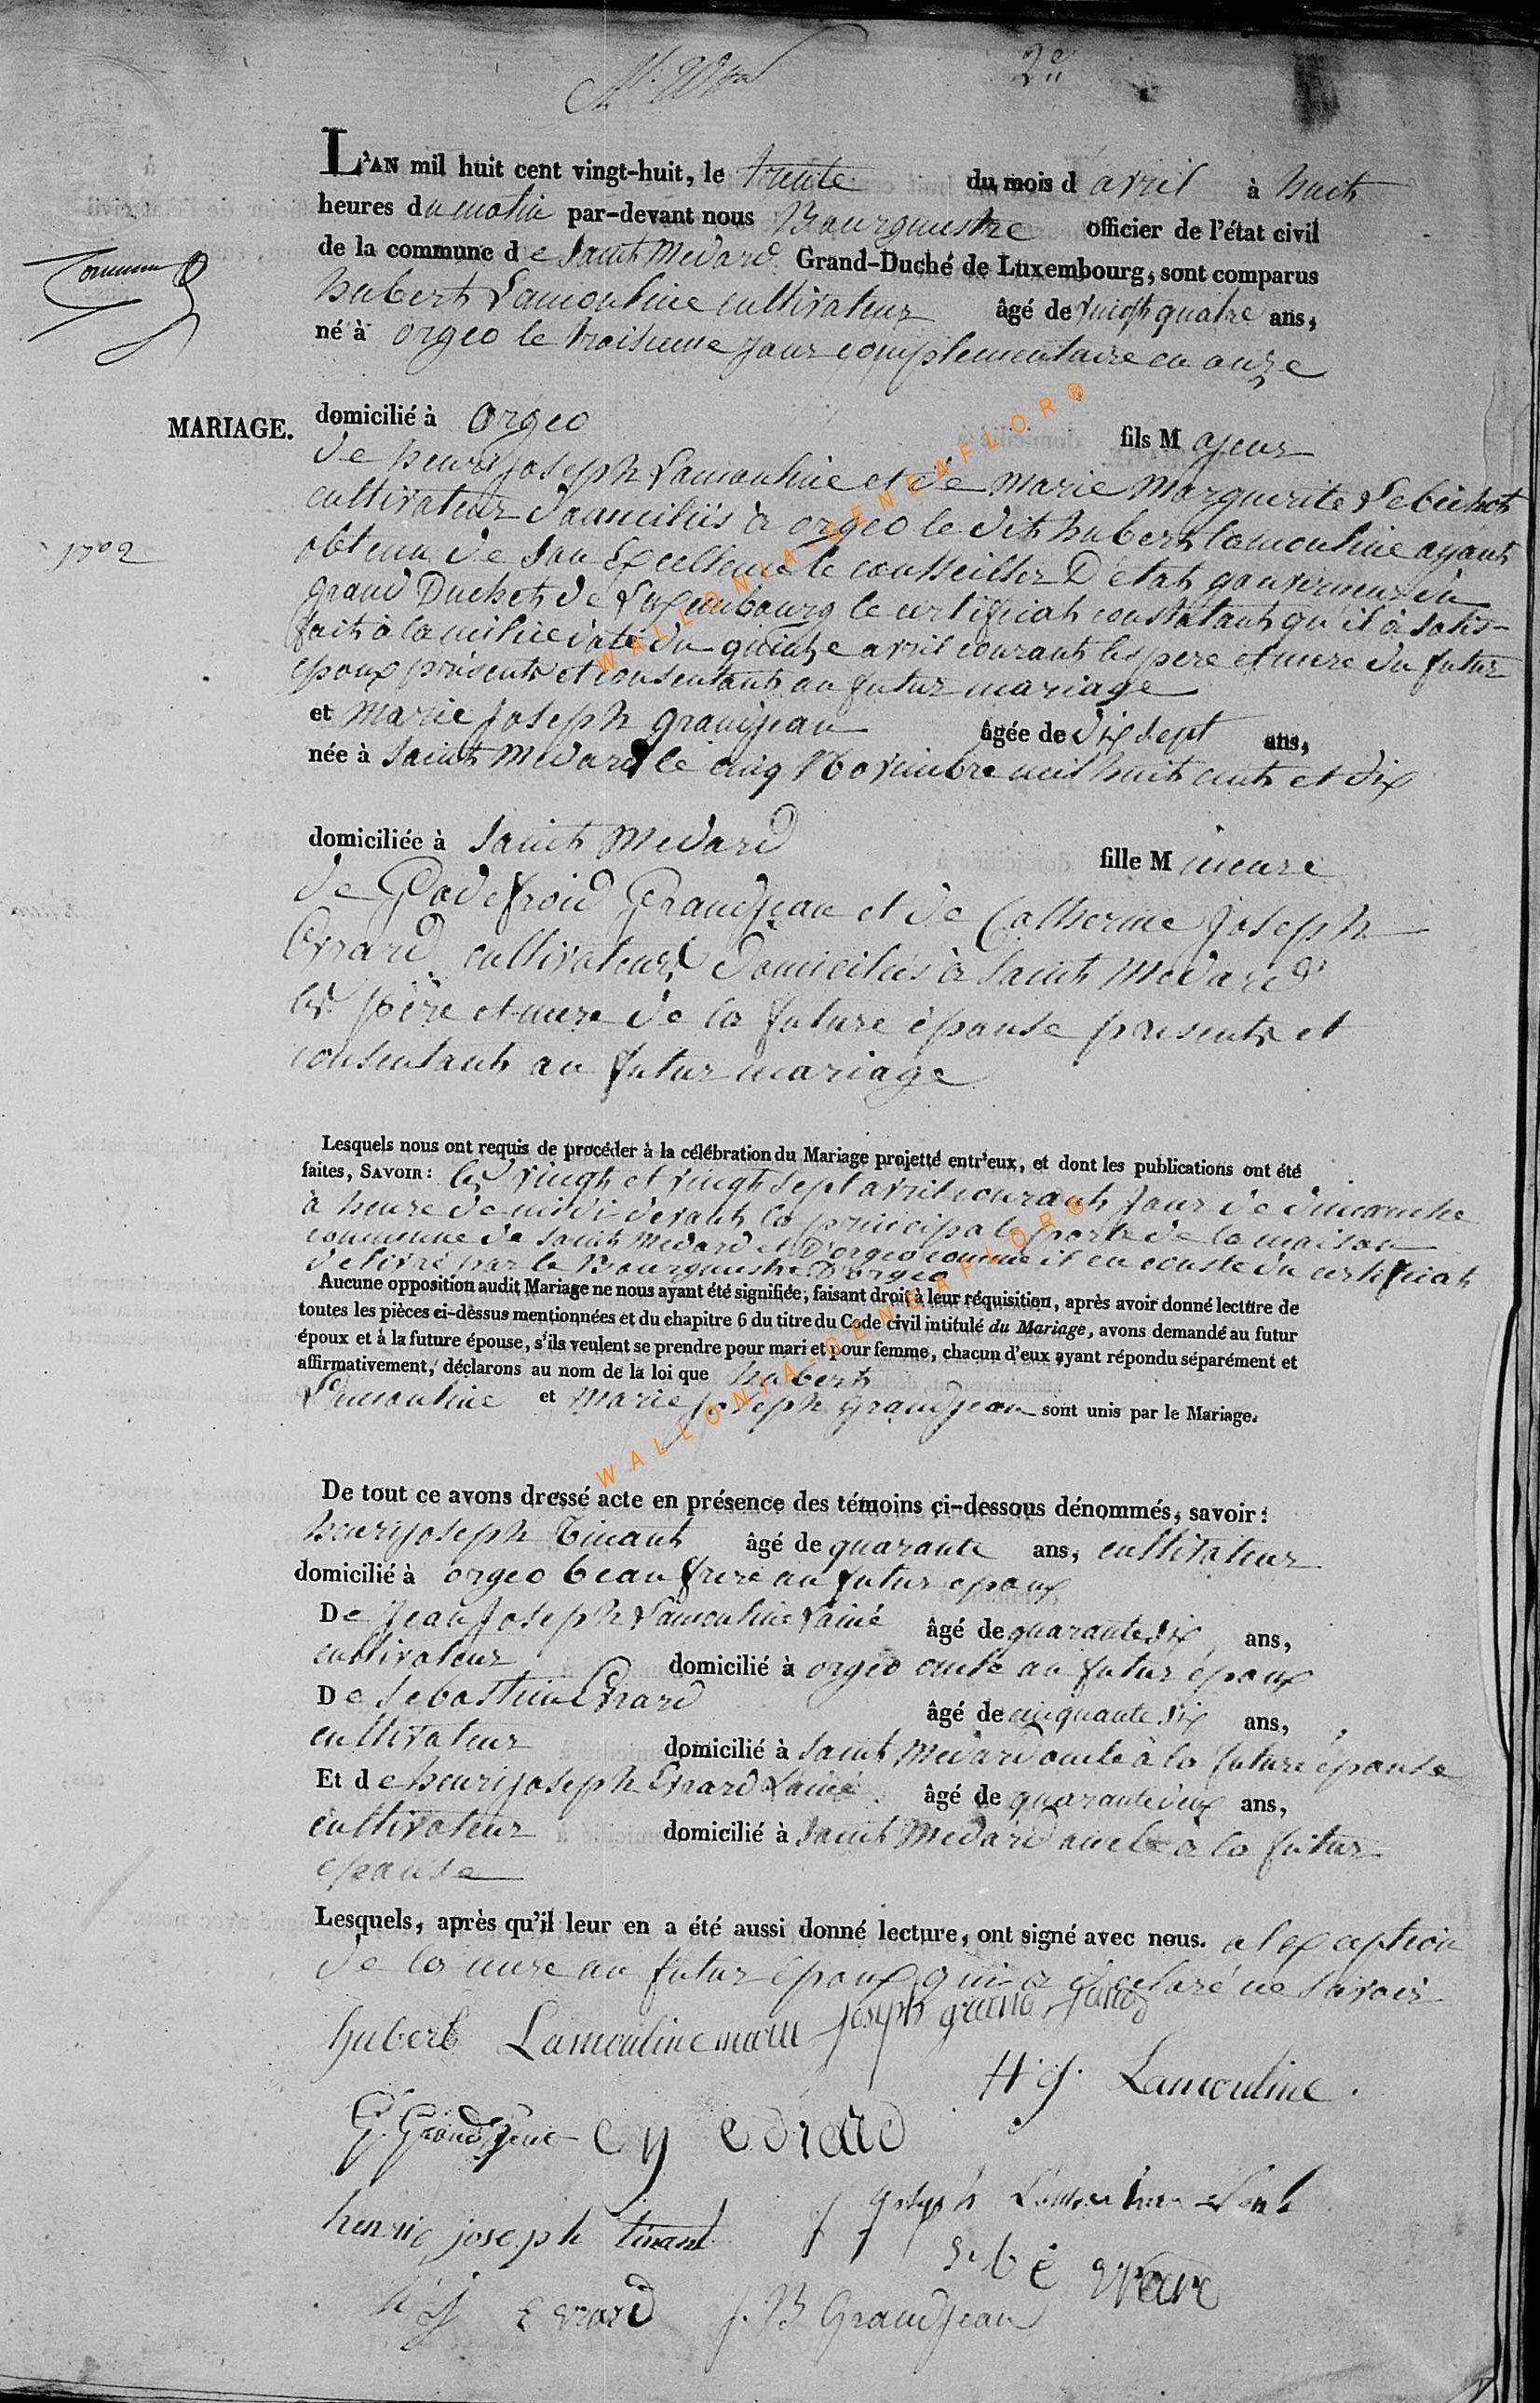 2e
L'AN mil huit cent vingt-huit, le trente du mois d avril à huit
heures du matin par-devant nous Bourguestre officier de l'état civil
de la commune de Saint Medard Grand-Duché de Luxembourg, sont comparus
hubert Lamouline cultivateur âgé de vingt quatre ans,
né à orgeo le troisieme jour complementaire en onze
MARIAGE.
domicilié à orgeo fils Majeur
de henri joseph Lamouline et de Marie Marguerite Lebichot
cultivateur domiciliés à orgeo le dit hubert lamouline ayant
1792
obtenu de son Excellence le conseiller D'état gouverneur du
grand Duchet de Luxembourg le certificat constatant qu'il à satis-
fait à la milice daté du quinze avril courant les pere et mere du futur
epoux présents et consentant au futur mariage
et marie joseph grandjean âgée de dix sept ans,
née à Saint Medard le cinq Novembre mil huit cent et dix
domiciliée à Saint Medard fille Mineure
de Godefroid Grandjean et de Catherine joseph
Evrard cultivateurs domiciliés à Saint Medard
les père et mere de la future épouse presents et
consentants au futur mariage
Lesquels nous ont requis de procéder à la célébration du Mariage projetté entr'eux, et dont les publications ont été
faites, SAVOIR : les vingt et vingt sept avril courant jour de dimanche
à heure de midi devant la principale porte de la maison
commune de Saint Medard et D'orgeo comme il en conste du certificat
delivré par le Bourguestre D'orgeo
Aucune opposition audit Mariage ne nous ayant été signifiée, faisant droit à leur réquisition, après avoir donné lecture de
toutes les pièces ci-dessus mentionnées et du chapitre 6 du titre du Code civil intitulé du Mariage, avons demandé au futur
époux et à la future épouse, s'ils veulent se prendre pour mari et pour femme, chacun d'eux ayant répondu séparément et
affirmativement, déclarons au nom de la loi que hubert
Lamouline et Marie joseph Grandjean sont unis par le Mariage.
De tout ce avons dressé acte en présence des témoins ci-dessous dénommés, savoir :
henri joseph Tinant âgé de quarante ans, cultivateur
domicilié à orgeo beau frere au futur epoux
De Jean Joseph Lamouline L'ainé âgé de quarante dix ans,
cultivateur domicilié à orgeo oncle au futur époux
De Sebastien Evrard âgé de cinquante dix ans,
cultivateur domicilié à Saint Medard oncle à la future épouse
Et de henri joseph Evrard L'ainé âgé de quarante deux ans,
cultivateur domicilié à Saint Medard oncle à la futur
epouse
Lesquels, après qu'il leur en a été aussi donné lecture, ont signé avec nous. a l'exception
de la mere au futur époux qui a déclaré ne savoir
hubert Lamouline marie joseph grand jean
H. j. Lamouline.
G. Grandjean C y Evrard
henri joseph tinant j joseph Lamouline
seb Evrard
h j Evrard J. B Grandjean
WALLONIA-GENEAFLOR®
WALLONIA-GENEAFLOR®